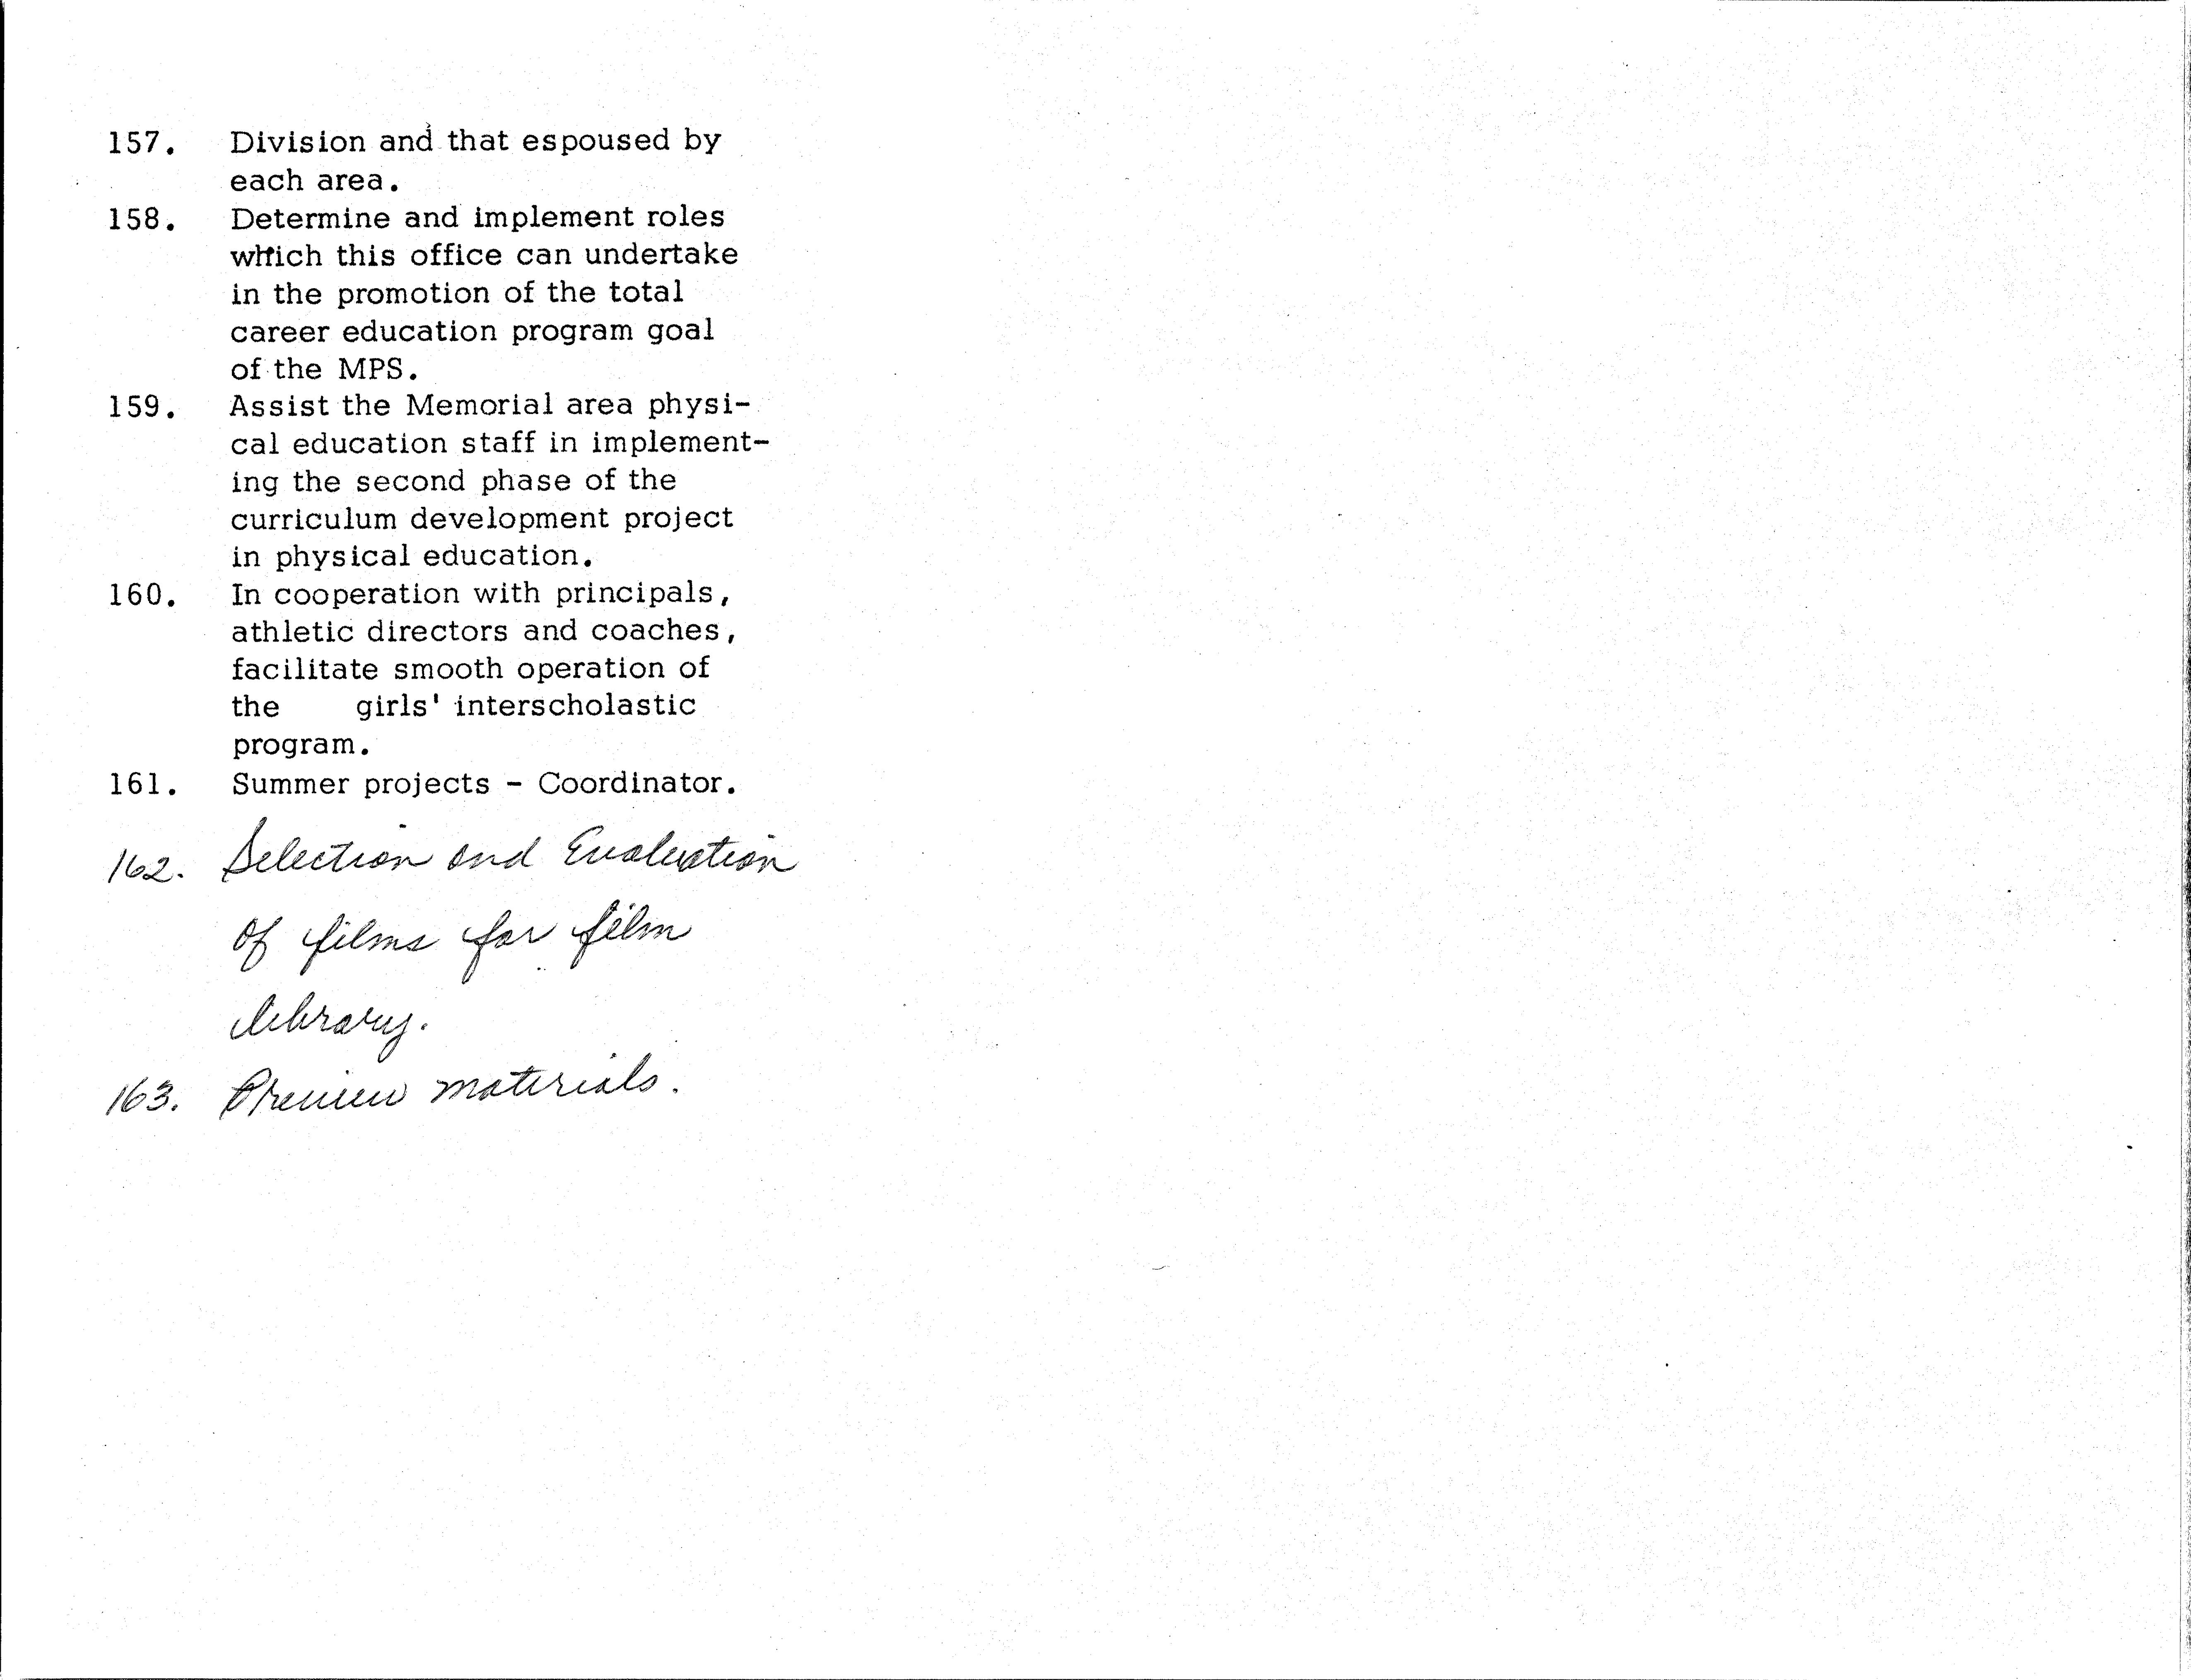 157. Division and that espoused by
each area.
158. Determine and implement roles
which this office can undertake
in the promotion of the total
career education program goal
of the MPS.
159. Assist the Memorial area physi-
cal education staff in implement-
ing the second phase of the
curriculum development project
in physical education.
160. In cooperation with principals,
athletic directors and coaches,
facilitate smooth operation of
the girls' interscholastic
program.
161. Summer projects - Coordinator.
162. Selection and Evaluation
of films for film
library.
163. Preview materials.